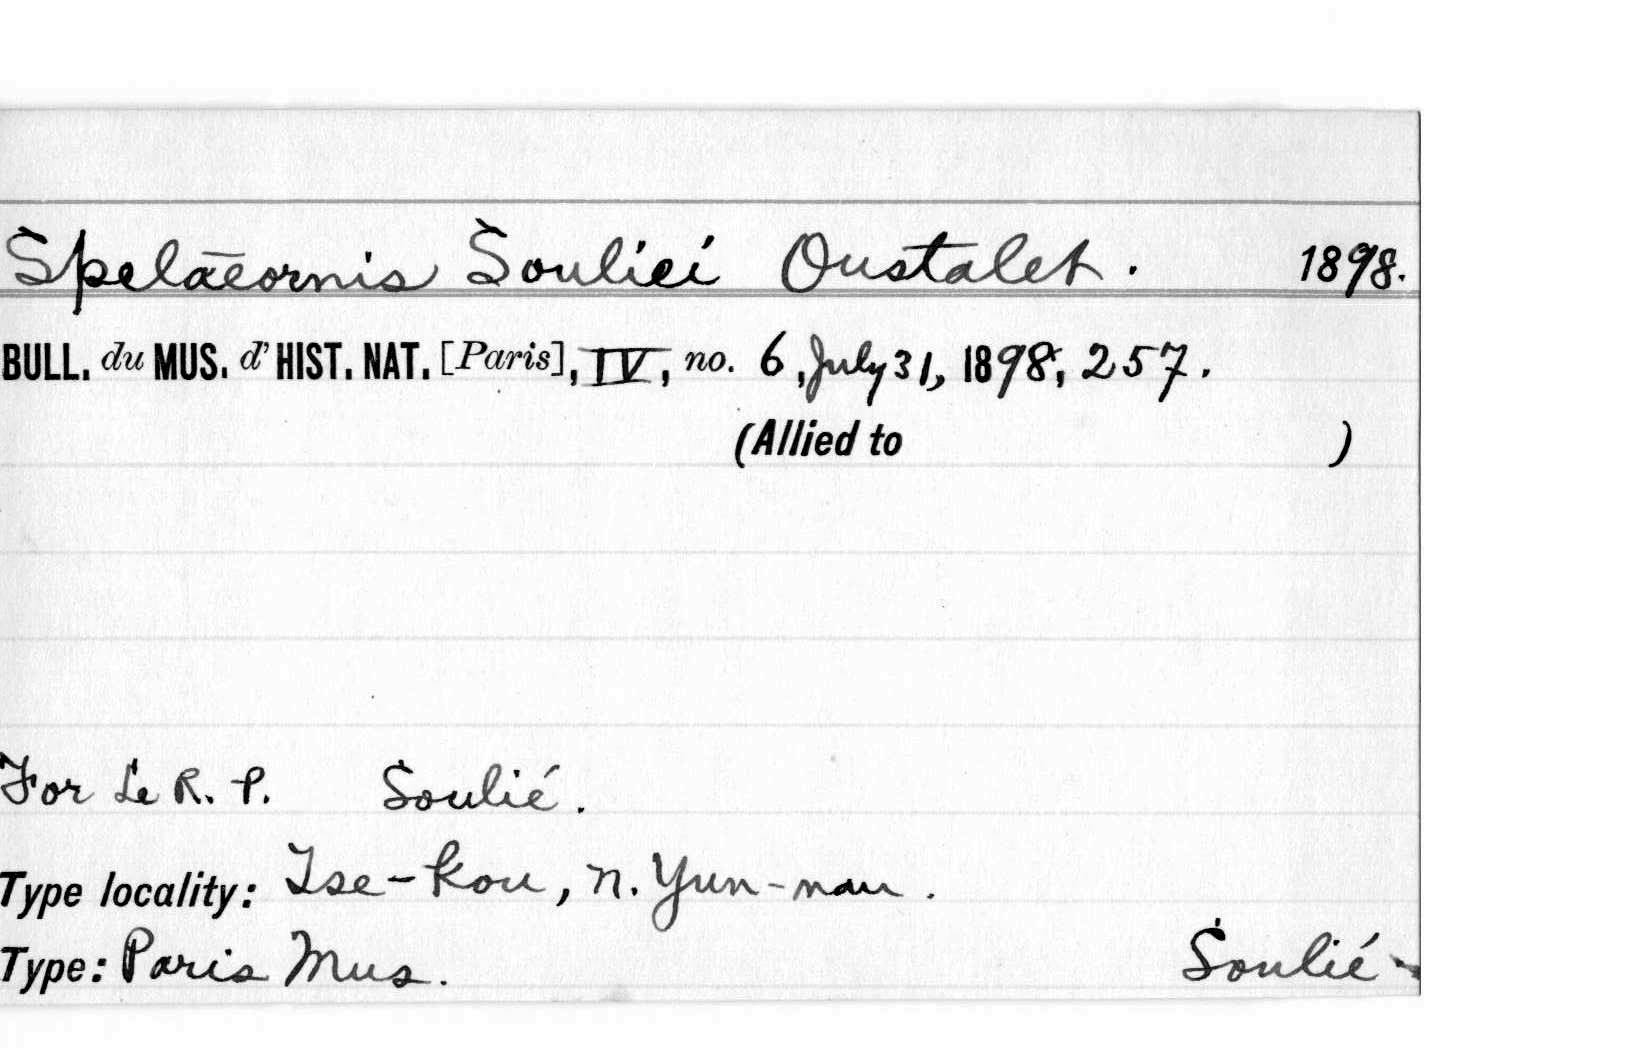 Spelaeornis Souliei Oustalet. 1898.
BULL. du MUS. d' HIST. NAT. [Paris], IV, no. 6, July 31, 1898, 257.
(Allied to )
For Le R. P. Soulié.
Type locality: Tse-kou, n. Yun-nan.
Type: Paris Mus. Soulié